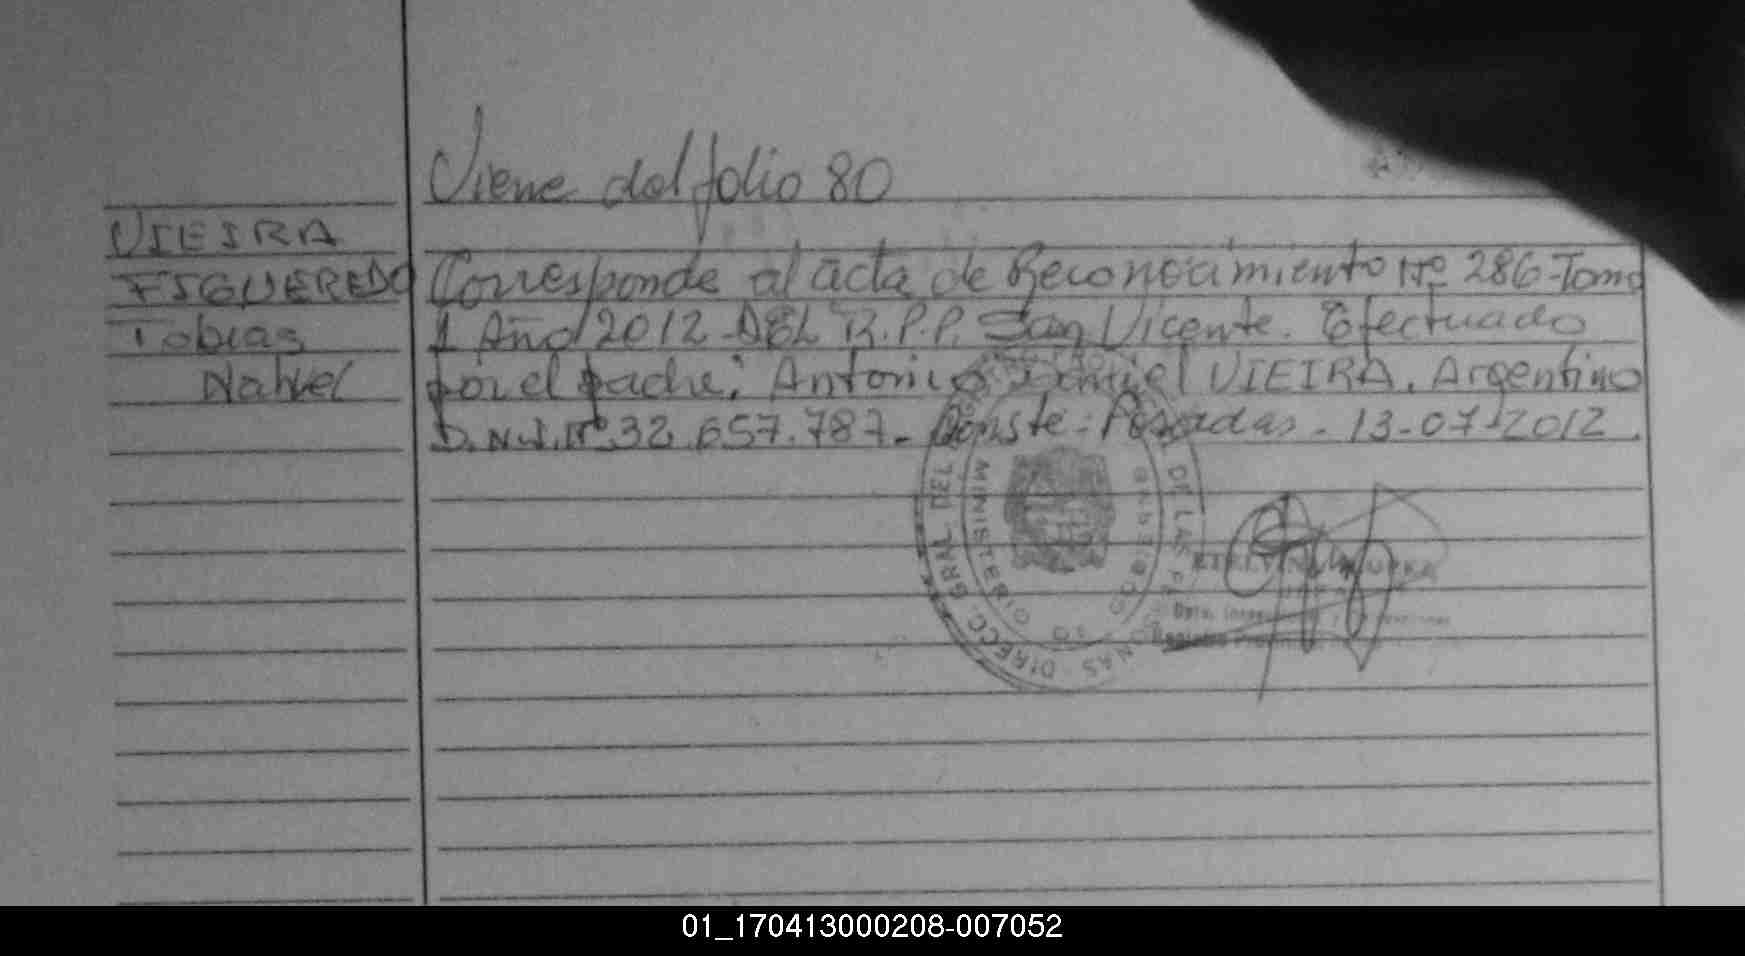 Viene del folio 80
VIEIRA
FIGUEREDO
Tobias
Nahuel
Corresponde al acta de Reconocimiento Nº 286-Tomo
1 Año 2012-DEL R.P.P. San Vicente. Efectuado
por el padre: Antonio Daniel VIEIRA. Argentino
D.N.I.Nº.32.657.787.- Conste-: Posadas.- 13-07-2012.
DIRECC. GRAL. DEL DE LAS PERSONAS
MINISTERIO GOBIERNO
01_170413000208-007052